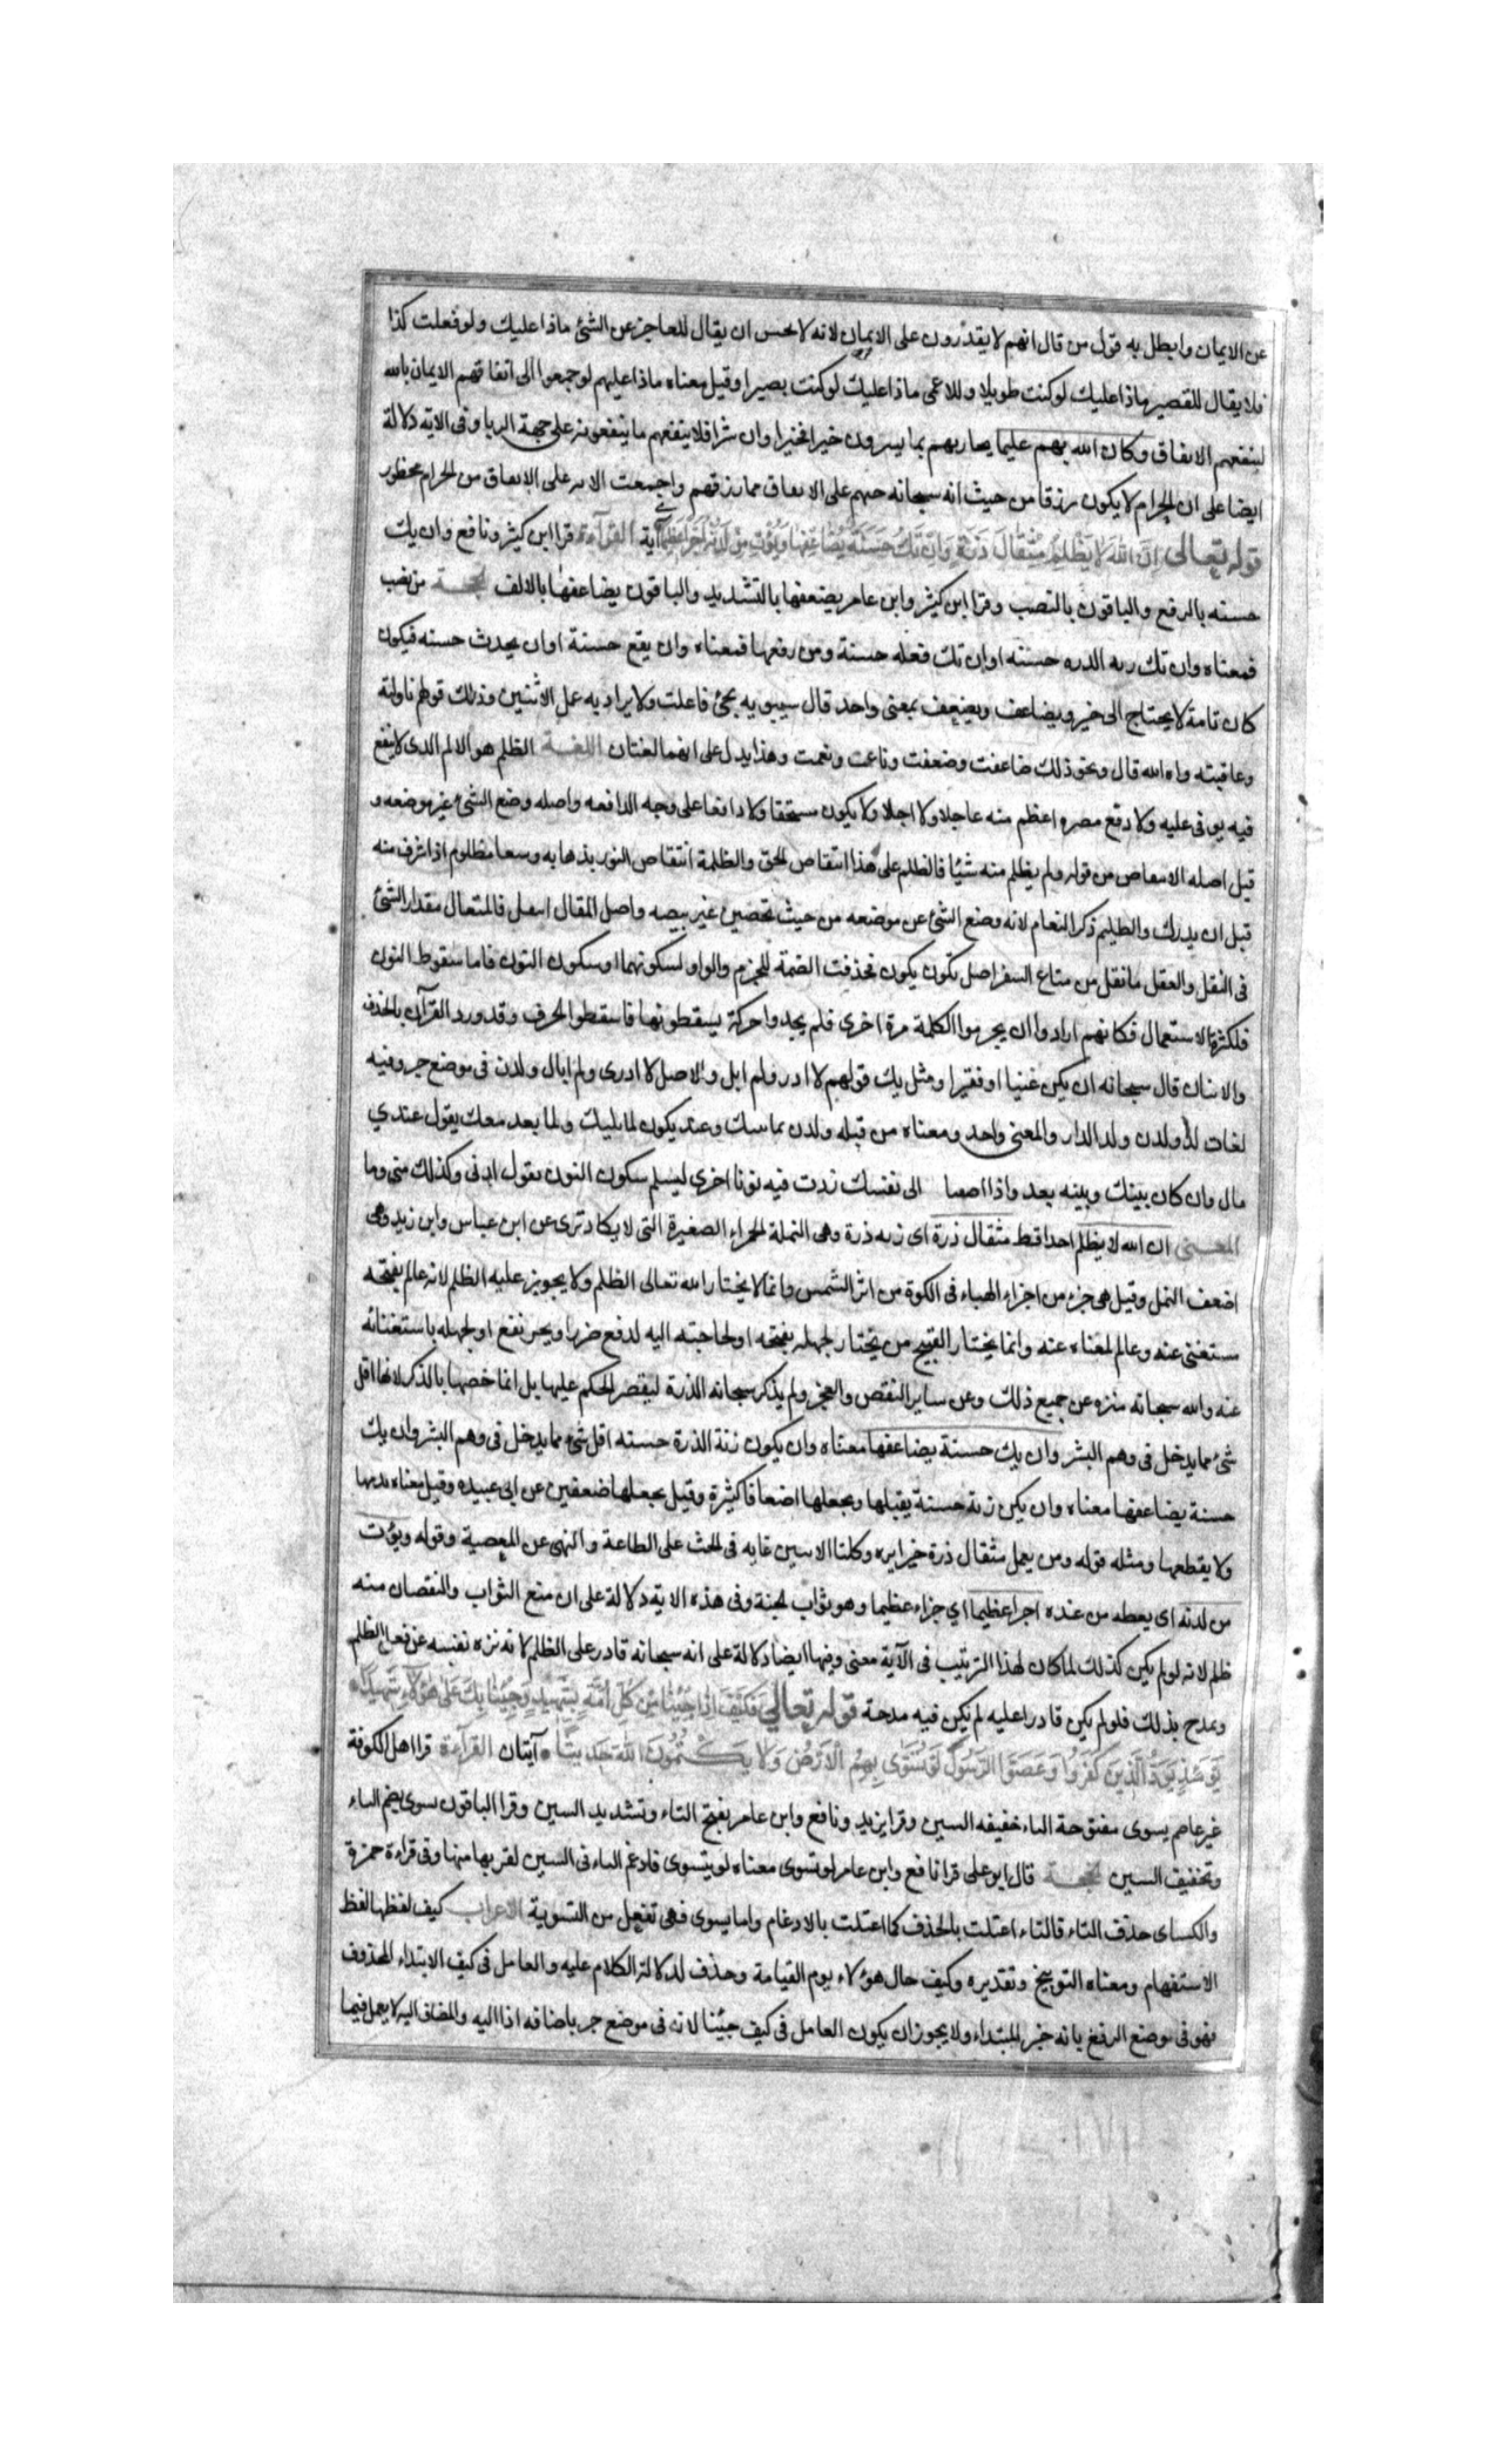 عن الايمان وابطل به قول من قال انهم لا يقدرون على الايمان لانه لا يحسن ان يقال للعاجز عن الشئ ماذا عليك ولو فعلت كذا
فلا يقال للقصير ماذا عليك لو كنت طويلا وللاعمى ماذا عليك لو كنت بصيرا وقيل معناه ماذا عليهم لو جمعوا الى انفاقهم الايمان بالله
لينفعهم الانفاق وكان الله بهم عليما يجازيهم بما يسرون خيرا فخيرا وان شرا فلا ينفعهم ما ينفقونه على جهة الريا وفى الاية دلالة
ايضا على ان الحرام لا يكون رزقا من حيث انه سبحانه حثهم على الانفاق مما رزقهم واجمعت الامة على الانفاق من الحرام محظور
قوله تعالى اِنَّ اللهَ لَا يَظْلِمُ مِثْقَالَ ذَرَّةٍ وَاِنْ تَكُ حَسَنَةً يُضَاعِفْهَا وَيُؤْتِ مِنْ لَدُنْهُ اَجْرًا عَظِيمًا آية القرآءة قرا ابن كثير ونافع وان يك
حسنه بالرفع والباقون بالنصب وقرا ابن كثير وابن عامر يضعفها بالتشديد والباقون يضاعفها بالالف الحجة من نصب
فمعناه وان تك زنه الذره حسنه او ان تك فعله حسنة ومن رفعها فمعناه وان يقع حسنة او ان يحدث حسنه فيكون
كان تامة لا يحتاج الى خبر ويضاعف ويضعف بمعنى واحد قال سيبويه يجئ فاعلت ولا يراد به عمل الاثنين وذلك قولهم ناولته
وعاقبته وعافاه الله قال ونحو ذلك ضاعفت وضعفت وناعمت ونعمت وهذا يدل على انهما لغتان اللغة الظلم هو الالم الذى لا نفع
فيه يوفى عليه ولا دفع مضره اعظم منه عاجلا ولا اجلا ولا يكون مستحقا ولا دافعا على وجه المدافعه واصله وضع الشئ غير موضعه و
قيل اصله الانتقاص من قوله ولم يظلم منه شيئا فالظلم على هذا انتقاص الحق والظلمة انتقاص النور بذهابه وسقا مظلوم اذا شرب منه
قبل ان يدرك والظليم ذكر النعام لانه وضع الشئ عن موضعه من حيث تحضين غير بيضه واصل المثقال الثقل فالمثقال مقدار الشئ
فى الثقل والثقل ما ثقل من متاع السفر اصل تكون يكون فحذفت الضمة للجزم والواو لسكونها وسكون النون فاما سقوط النون
فلكثرة الاستعمال فكانهم ارادوا ان يجزموا الكلمة مرة اخرى فلم يجدوا حركة يسقطونها فاسقطوا الحرف وقد ورد القرآن بالحذف
والاثبات قال سبحانه ان يكن غنيا او فقيرا ومثل يك قولهم لا ادر ولم ابل والاصل لا ادرى ولم ابال ولدن فى موضع جر وفيه
لغات لد ولدن ولدا الدار والمعنى واحد ومعناه من قبله ولدن مما يليك وعند يكون لما يليك ولما بعد معك يقول عندي
مال وان كان بينك وبينه بعد واذا اضفتها الى نفسك زدت فيه نونا اخرى ليسلم سكون النون تقول لدنى وكذلك منى وما
المعنى ان الله لا يظلم احدا قط مثقال ذرة اى زنه ذرة وهى النملة الحمراء الصغيرة التى لا يكاد ترى عن ابن عباس وابن زيد وهى
اضعف النمل وقيل هى جزء من اجزاء الهباء فى الكوة من اثر الشمس وانما لا يختار الله تعالى الظلم ولا يجوز عليه الظلم لانه عالم بقبحه
مستغنى عنه وعالم بغناه عنه وانما يختار القبيح من يختار لجهله بقبحه او لحاجته اليه لدفع ضررا ويجر نفع او لجهله باستغنائه
عنه والله سبحانه منزه عن جميع ذلك وعن ساير النقص والعجز ولم يذكر سبحانه الذرة ليقصر الحكم عليها بل انما خصها بالذكر لانها اقل
شئ مما يدخل فى وهم البشر وان يك حسنة يضاعفها معناه وان يكون زنة الذرة حسنه اقل شئ مما يدخل فى وهم البشر وان يك
حسنة يضاعفها معناه وان يكن زنة حسنة يقبلها ويجعلها اضعافا كثيرة وقيل يجعلها ضعفين عن ابى عبيده وقيل معناه يديمها
ولا يقطعها ومثله قوله ومن يعمل مثقال ذرة خيرا يره وكلتا الايتين غايه فى الحث على الطاعة والنهى عن المعصية وقوله ويؤت
من لدنه اى يعطه من عنده اجرا عظيما اي جزاء عظيما وهو ثواب الجنة وفى هذه الاية دلالة على ان منع الثواب والنقصان منه
ظلم لانه لو لم يكن كذلك لما كان لهذا الترتيب فى الآية معنى وفيها ايضا دلالة على انه سبحانه قادر على الظلم لانه نزه نفسه عن فعل الظلم
وتمدح بذلك فلو لم يكن قادرا عليه لم تكن فيه مدحة قوله تعالى فَكَيْفَ اِذَا جِئْنَا مِنْ كُلِّ اُمَّةٍ بِشَهِيدٍ وَجِئْنَا بِكَ عَلَى هٰؤُلَاءِ شَهِيدًا
يَوْمَئِذٍ يَوَدُّ الَّذِينَ كَفَرُوا وَعَصَوُا الرَّسُولَ لَوْ تُسَوَّى بِهِمُ الْاَرْضُ وَلَا يَكْتُمُونَ اللهَ حَدِيثًا آيتان القرآءة قرا اهل الكوفة
غير عاصم يسوى مفتوحة التاء خفيفه السين وقرا يزيد ونافع وابن عامر بفتح التاء وتشديد السين وقرا الباقون تسوى بضم التاء
وتخفيف السين الحجة قال ابو على قرا نافع وابن عامر لو تسوى معناه لو يتسوى فادغم التاء فى السين لقربها منها وفى قراءة حمزة
والكساى حذف التاء فالتاء اعتلت بالحذف كما اعتلت بالادغام واما يسوى فهى تفعل من التسوية الاعراب كيف لفظها لفظ
الاستفهام ومعناه التوبيخ وتقديره وكيف حال هؤلاء يوم القيامة وحذف لدلالة الكلام عليه والعامل فى كيف الابتداء المحذوف
فهو فى موضع الرفع بانه خبر المبتداء ولا يجوز ان يكون العامل فى كيف جئنا لانه فى موضع جر باضافه اذا اليه والمضاف اليه لا يعمل فيما